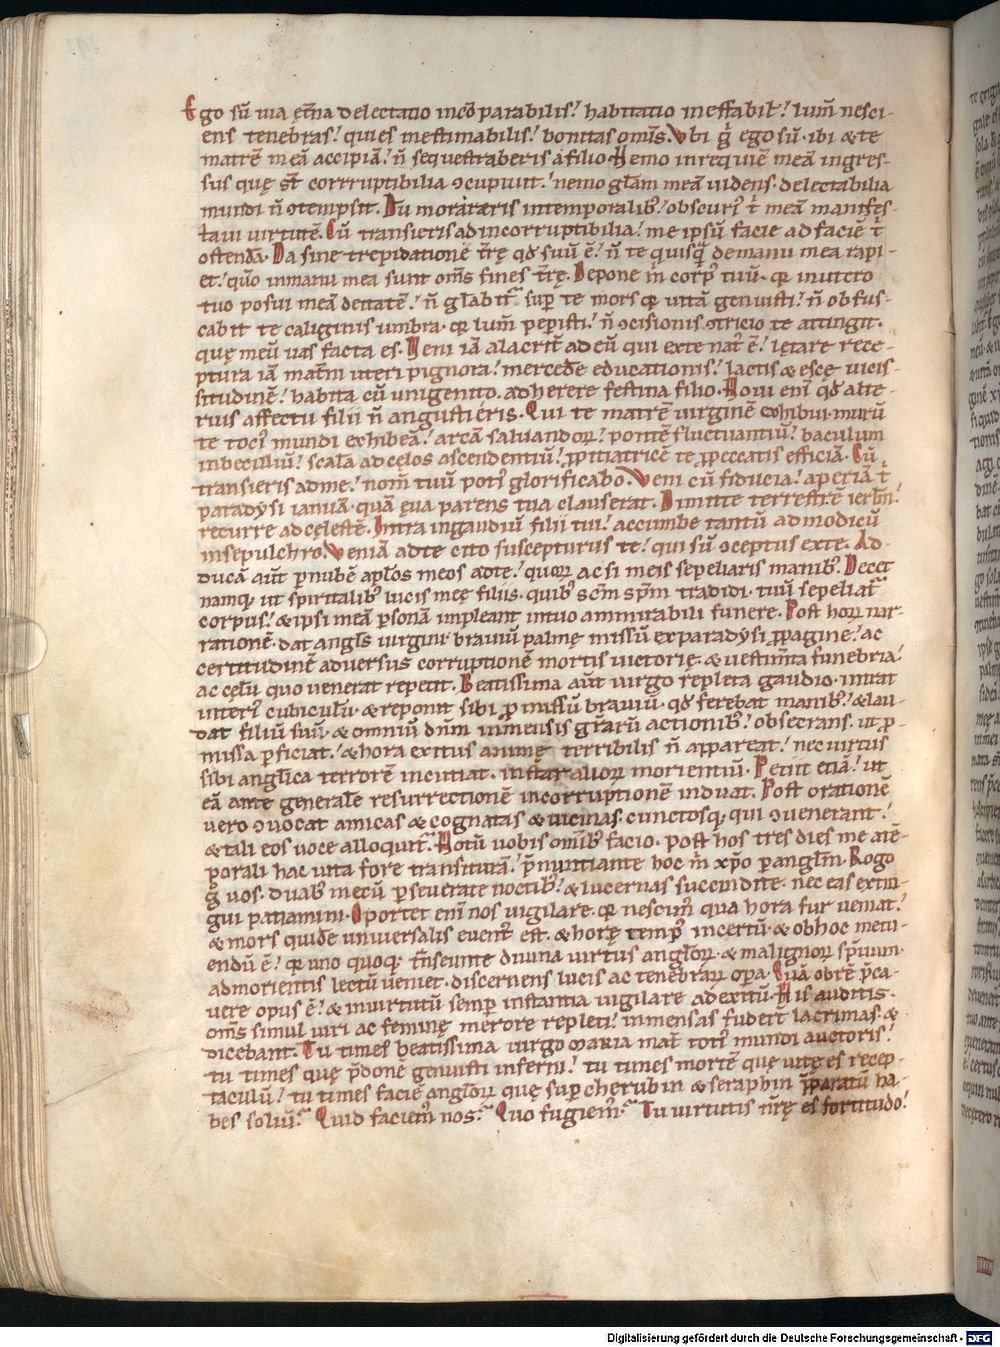 Ego sū uia et̄na delectatio incōparabilis! habitatio ineffabil̄! lum̄ nesci-
ens tenebras! quies inestimabilis! bonitas om̄s. Vbi g̊ ego sū. ibi & te
matrē meā accipiā! n̄ sequestraberis a filio. Nemo in requiē meā ingres-
sus quę st̄ corrruptibilia ɔcupiuit! nemo gl̄am meā uidens. delectabilia
mundi n̄ ɔtempsit. Tu morāraris in temporalib; obscuri᷒ t' meā manifes-
taui uirtutē. Cū transieris ad incorruptibilia! me ipsū facie ad faciē t'
ostendā. Da sine trepidatione t̄rę qd̄ suū ē! n̄ te quisq̄ de manu mea rapi-
et! qm̄o in manu mea sunt om̄s fines t̄rę. Depone m̄ corp᷒ tuū. qr in utero
tuo posui meā deitatē! n̄ gl̄abit᷑ sup te mors qr uitā genuisti! n̄ obfus-
cabit te caliginis umbra. qr lum̄ pepisti! n̄ ɔcisionis ɔtricio te attingit.
quę meū uas facta es. Veni iā alacrit̄ ad eū qui ex te nat᷒ ē! lętare rece-
ptura iā mat̄m uteri pignora! mercedē educationis! lactis & escę uicis-
situdinē! habita cū unigenito. adherere festina filio. Noui enī qd̄ alte-
rius affectu filii n̄ angustieris. Qui te matrē uirginē exhibui. murū
te toci᷒ mundi exhibeā! arcā saluandoꝝ! pontē fluctuantiū! baculum
inbecilliū! scalā ad cęlos ascendentiū! ꝓpitiatricē te ꝓ peccatis efficiā. Cū
transieris ad me! nom̄ tuū poti᷒ glorificabo. Veni cū fiducia! aperiā t'
paradysi ianuā. quā eua parens tua clauserat. Dimitte terrestrē ierl̄m!
recurre ad cęlestē. Intra in gaudiū filii tui! accumbe tantū ad modicū
in sepulchro. Veniā ad te cito suscepturus te! qui sū ɔceptus ex te. Ad-
ducā aūt p nubē apl̄os meos ad te! quoꝝ ac si meis sepeliaris manib;. Decet
namq; ut spiritalib; uicis meę filiis. quib; sc̄m sp̄m tradidi. tuū sepeliat᷑
corpus! & ipsi meā psonā impleant in tuo ammirabili funere. Post hoꝝ nar-
rationē. dat angl̄s uirgini brauiū palmę missū ex paradysi ꝓpagine! ac
certitudinē aduersus corruptionē mortis uictorię. & uestim̄ta funebria!
ac cęlū quo uenerat repetit. Beatissima aūt uirgo repleta gaudio. intrat
interi᷒ cubiculū. & reponit sibi ꝓmissū brauiū. qd̄ ferebat manib;! & lau-
dat filiū suū. & omniū dn̄m inmensis gr̄arū actionib;! obsecrans. ut p-
missa pficiat! & hora exitus animę terribilis n̄ appareat! nec uirtus
sibi angl̄ica terrorē incutiat. instar alioꝝ morientiū. Petiit etiā! ut
eā ante generalē resurrectionē incorruptionē induat. Post orationē
uero ɔuocat amicas & cognatas & uicinas. cunctosq; qui ɔuenerant!
& tali eos uoce alloquit᷑. Notū uobis om̄ib; facio. post hos tres dies me a tē-
porali hac uita fore transiturā! p̄nuntiante hoc m̄ xp̄o p angl̄m. Rogo
g̊ uos. duab; mecū pseuerate noctib;! & lucernas succendite. nec eas extin-
gui patiamini. Oportet enī nos uigilare. qr nescim᷒ qua hora fur ueniat!
& mors quidē uniuersalis euent᷒ est. & horę temp᷒ incertū. & ob hoc metu-
endū ē! qr uno quoq; t̄nseunte diuina uirtus angl̄oꝝ. & malignoꝝ sp̄uum.
ad morientis lectū ueniet. discernens lucis ac tenebrarꝝ opa. Quā ob rē p̄ca-
uere opus ē! & in uirtutū semp instantia uigilare ad exitū. His auditis.
om̄s simul uiri ac feminę merore repleti! inmensas fudert̄ lacrimas. &
dicebant. Tu times beatissima uirgo maria mat̄ toti᷒ mundi auctoris!
tu times quę p̄donē genuisti inferni! tu times mortē quę uitę es recep-
taculū! tu times faciē angl̄oꝝ quę sup cherubin & seraphin p̄paratū ha-
bes soliū? Quid faciem᷒ nos? Quo fugiem᷒? Tu uirtutis nr̄ę es fortitudo!
Digitalisierung gefördert durch die Deutsche Forschungsgemeinschaft - DFG